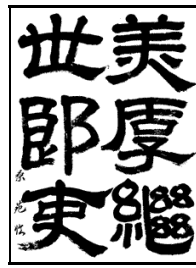 美厚繼
世郎吏